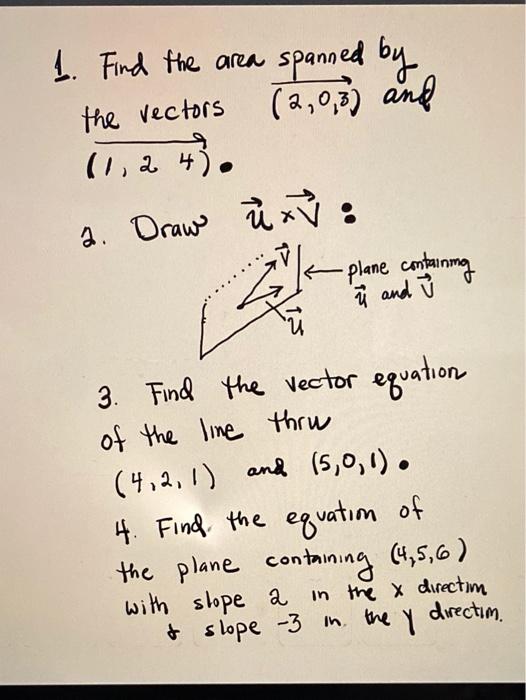 1. Find the area spanned by
the vectors (2,0,3) and
(1, 2 4).
2. Draw u x v :
v
← plane containing
u and v
u
3. Find the vector equation
of the line thru
(4,2,1) and (5,0,1).
4. Find the equation of
the plane containing (4,5,6)
with slope 2 in the x direction
& slope -3 in the y direction.